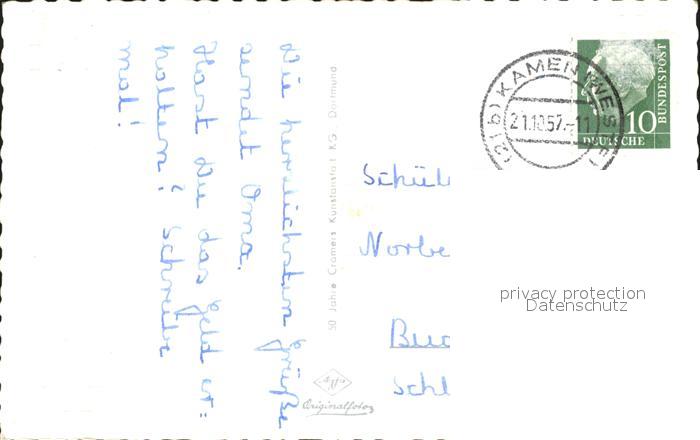 Die herzlichsten Grüße
sendet Oma.
Hast Du das Geld er:
halten? Schreibe
mal!
50 Jahre Cramers Kunstanstalt KG. Dortmund
Agfa
Originalfoto
KAMEN (WESTF)
(21b)
21.10.57.-11
10
DEUTSCHE
BUNDESPOST
Schül
Norbe
Buc
Schl
privacy protection
Datenschutz